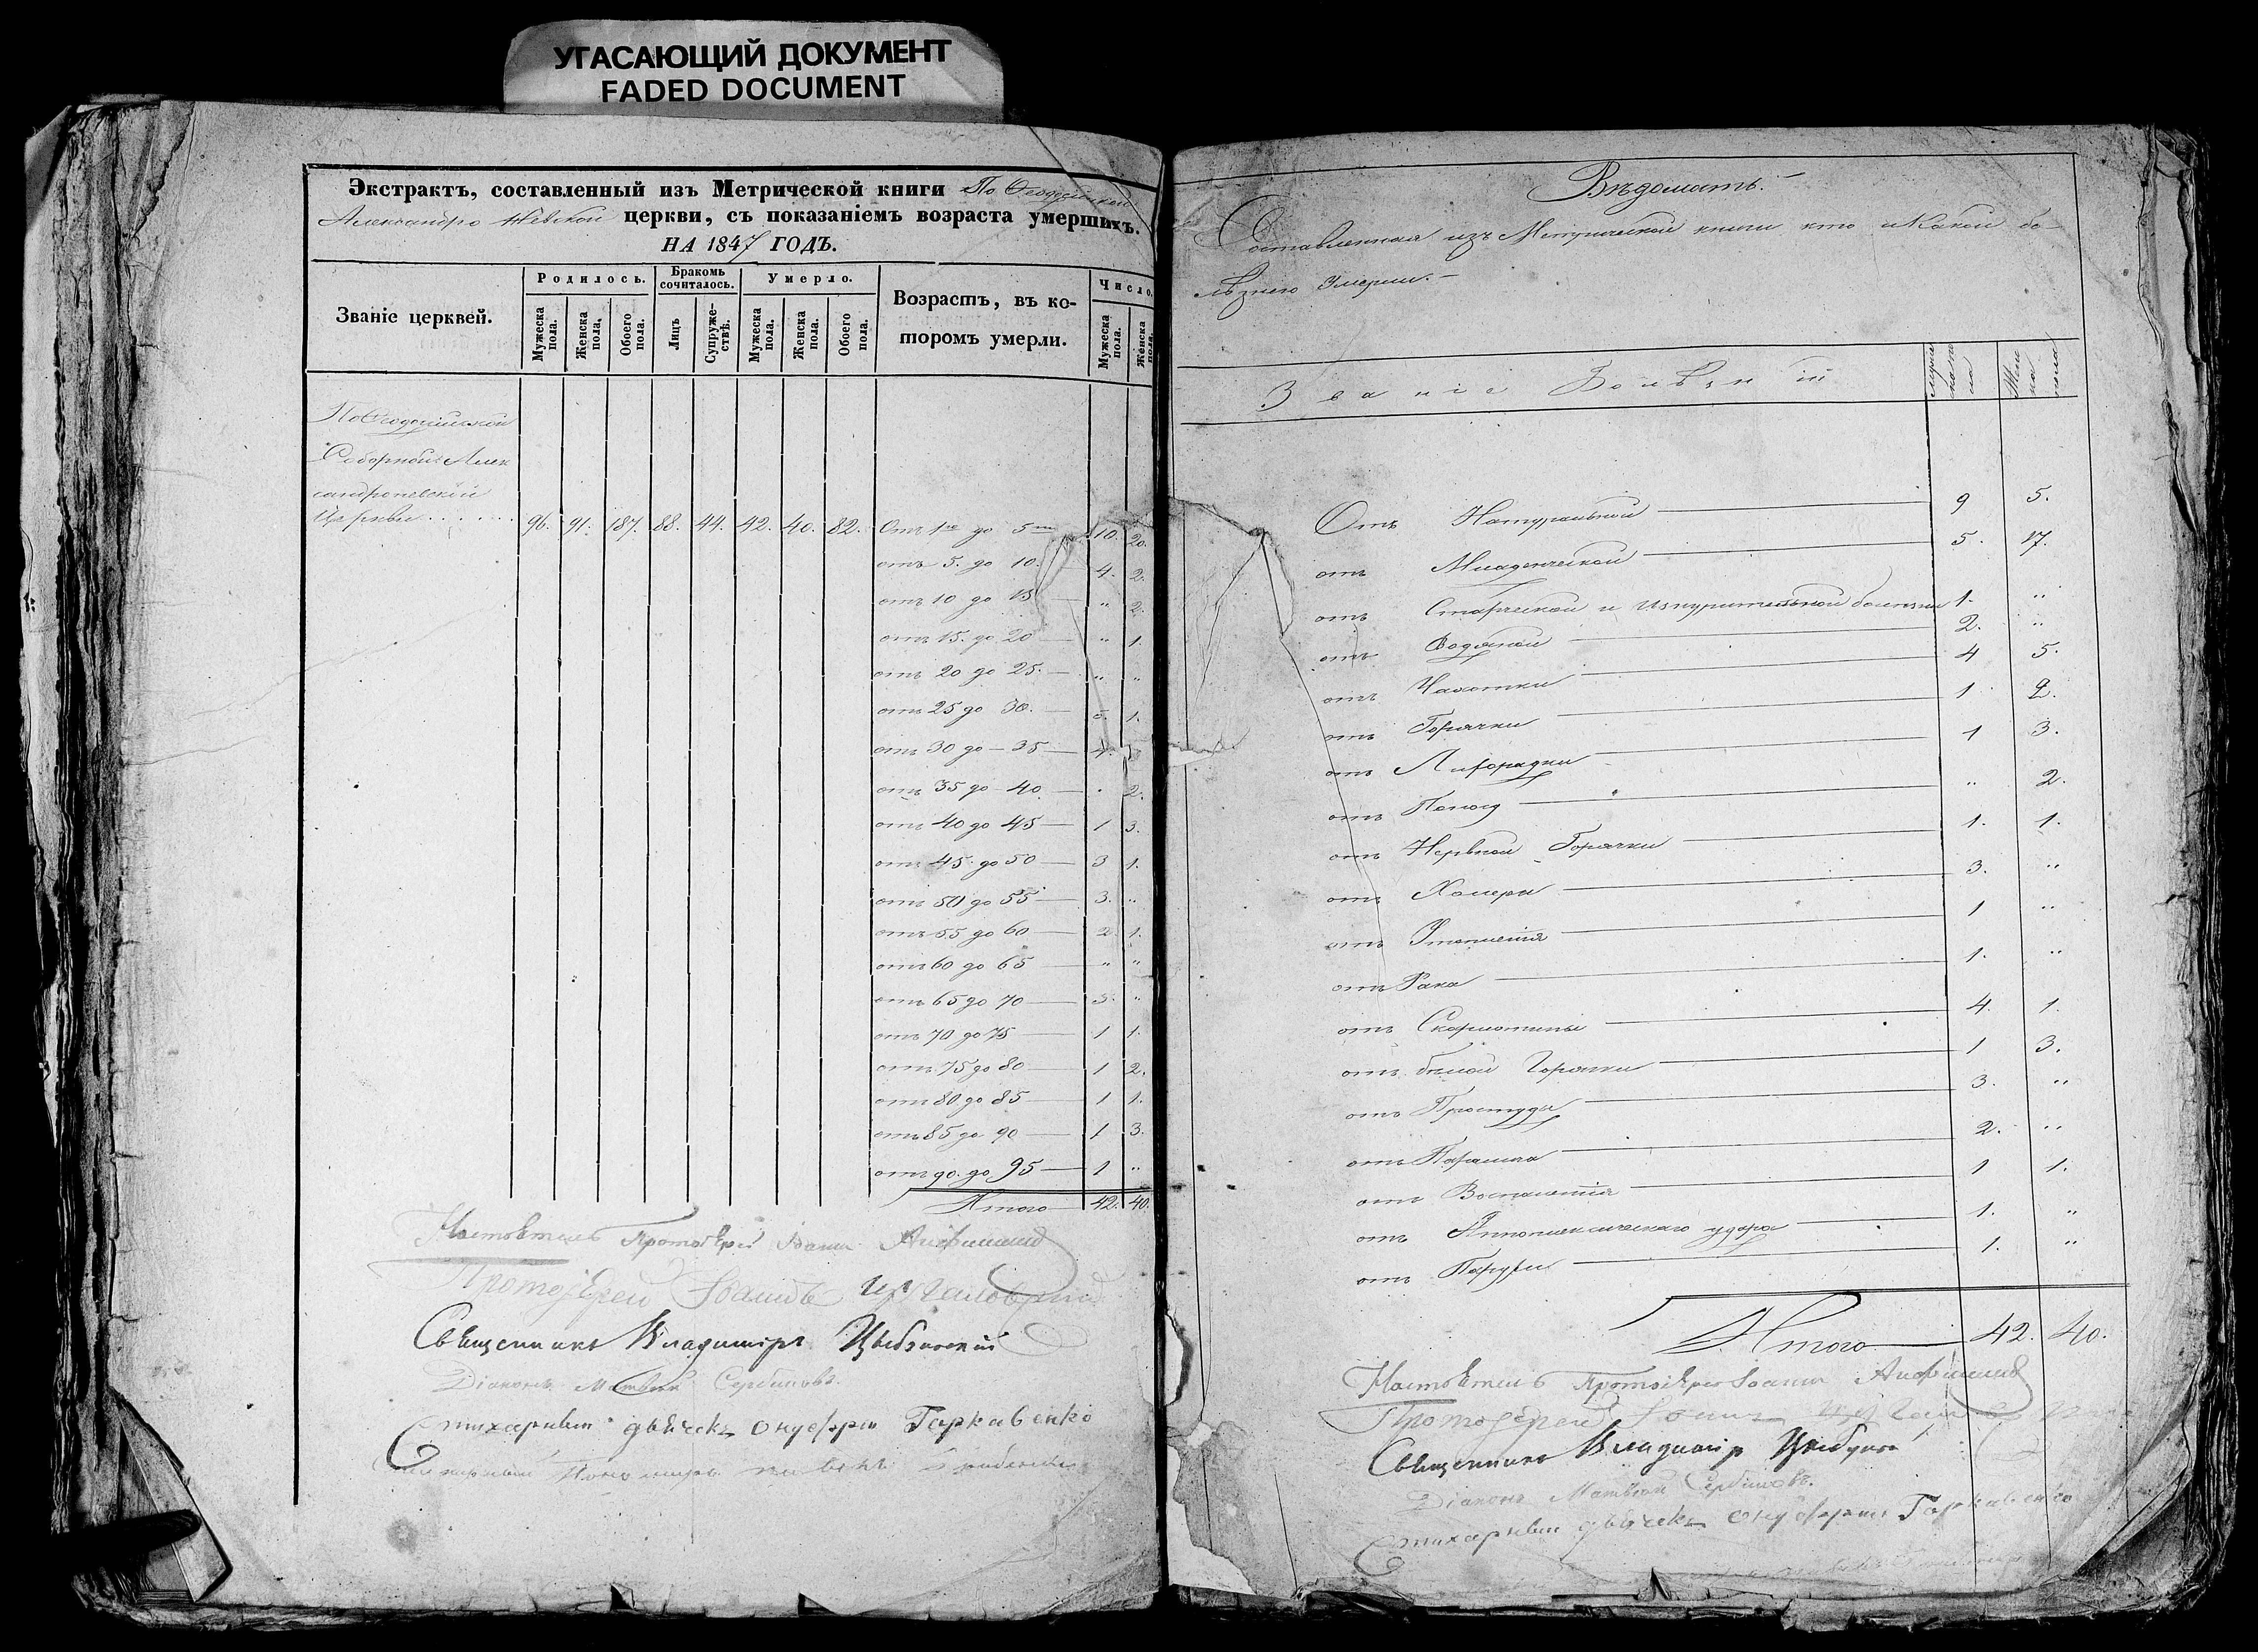 УГАСАЮЩИЙ ДОКУМЕНТ
FADED DOCUMENT
Экстрактъ, составленный изъ Метрической книги По Ѳеодосійской
Александро Невской церкви, съ показаніемъ возраста умершихъ.
НА 1847 ГОДЪ.
Званіе церквей.
Родилось.
Бракомъ сочиталось.
Умерло.
Возрастъ, въ которомъ умерли.
Число.
Мужеска пола.
Женска пола.
Обоего пола.
Лицъ
Супружествъ.
Мужеска пола.
Женска пола.
Обоего пола.
Мужеска пола.
Женска пола.
По Ѳеодосійской
Соборной Алек
сандроневской
Церкви . . . . . . 96. 91. 187. 88. 44. 42. 40. 82. Отъ 1го до 5ти 10. 20.
отъ 5. до 10. 4. 2.
отъ 10 до 15 " 2.
отъ 15. до 20 " 1.
отъ 20 до 25. " "
отъ 25 до 30. 1.
отъ 30 до 35
отъ 35 до 40 2.
отъ 40 до 45 1 3.
отъ 45. до 50 3 1.
отъ 50 до 55 3. "
отъ 55 до 60 2 1.
отъ 60 до 65 " "
отъ 65 до 70 3. "
отъ 70 до 75 1 1.
отъ 75 до 80 1 2.
отъ 80 до 85 1 1.
отъ 85 до 90 1 3.
отъ 90. до 95 1 "
Итого 42. 40.
Настоятель Протоіерей Іоаннъ
Протоіерей Іоаннъ
Священникъ Владиміръ
Діаконъ Матвей Сербиновъ.
Стихарный дьячекъ Онуфрій Гаркавенко
Вѣдомость.
Составленная изъ Метрической книги кто и какой бо-
лѣзнею Умерли.
Званіе Болѣзній
мужеска пола
Женска пола
Отъ Натуральной 9 5.
отъ Младенческой 5. 17.
отъ Старческой и Изнурительной болезни 1. "
отъ Водяной 2. "
отъ Чахотки 4 5.
отъ Горячки 1 2.
отъ Лихорадки 1 3.
отъ " 2.
отъ Нервной Горячки 1. 1.
отъ Холеры 3. "
отъ Утопленія 1 "
отъ Рака 1. "
отъ Скарлатины 4. 1.
отъ белой Горячки 1 3.
отъ Простуды 3. "
отъ Паралича 2. "
отъ Воспаленія 1 1.
отъ Апоплексическаго удара 1. "
отъ 1. "
Итого 42. 40.
Настоятель Протоіерей Іоаннъ
Протоіерей Іоаннъ
Священникъ Владиміръ
Діаконъ Матвей Сербиновъ.
Стихарный дьячекъ Онуфрій Гаркавенко